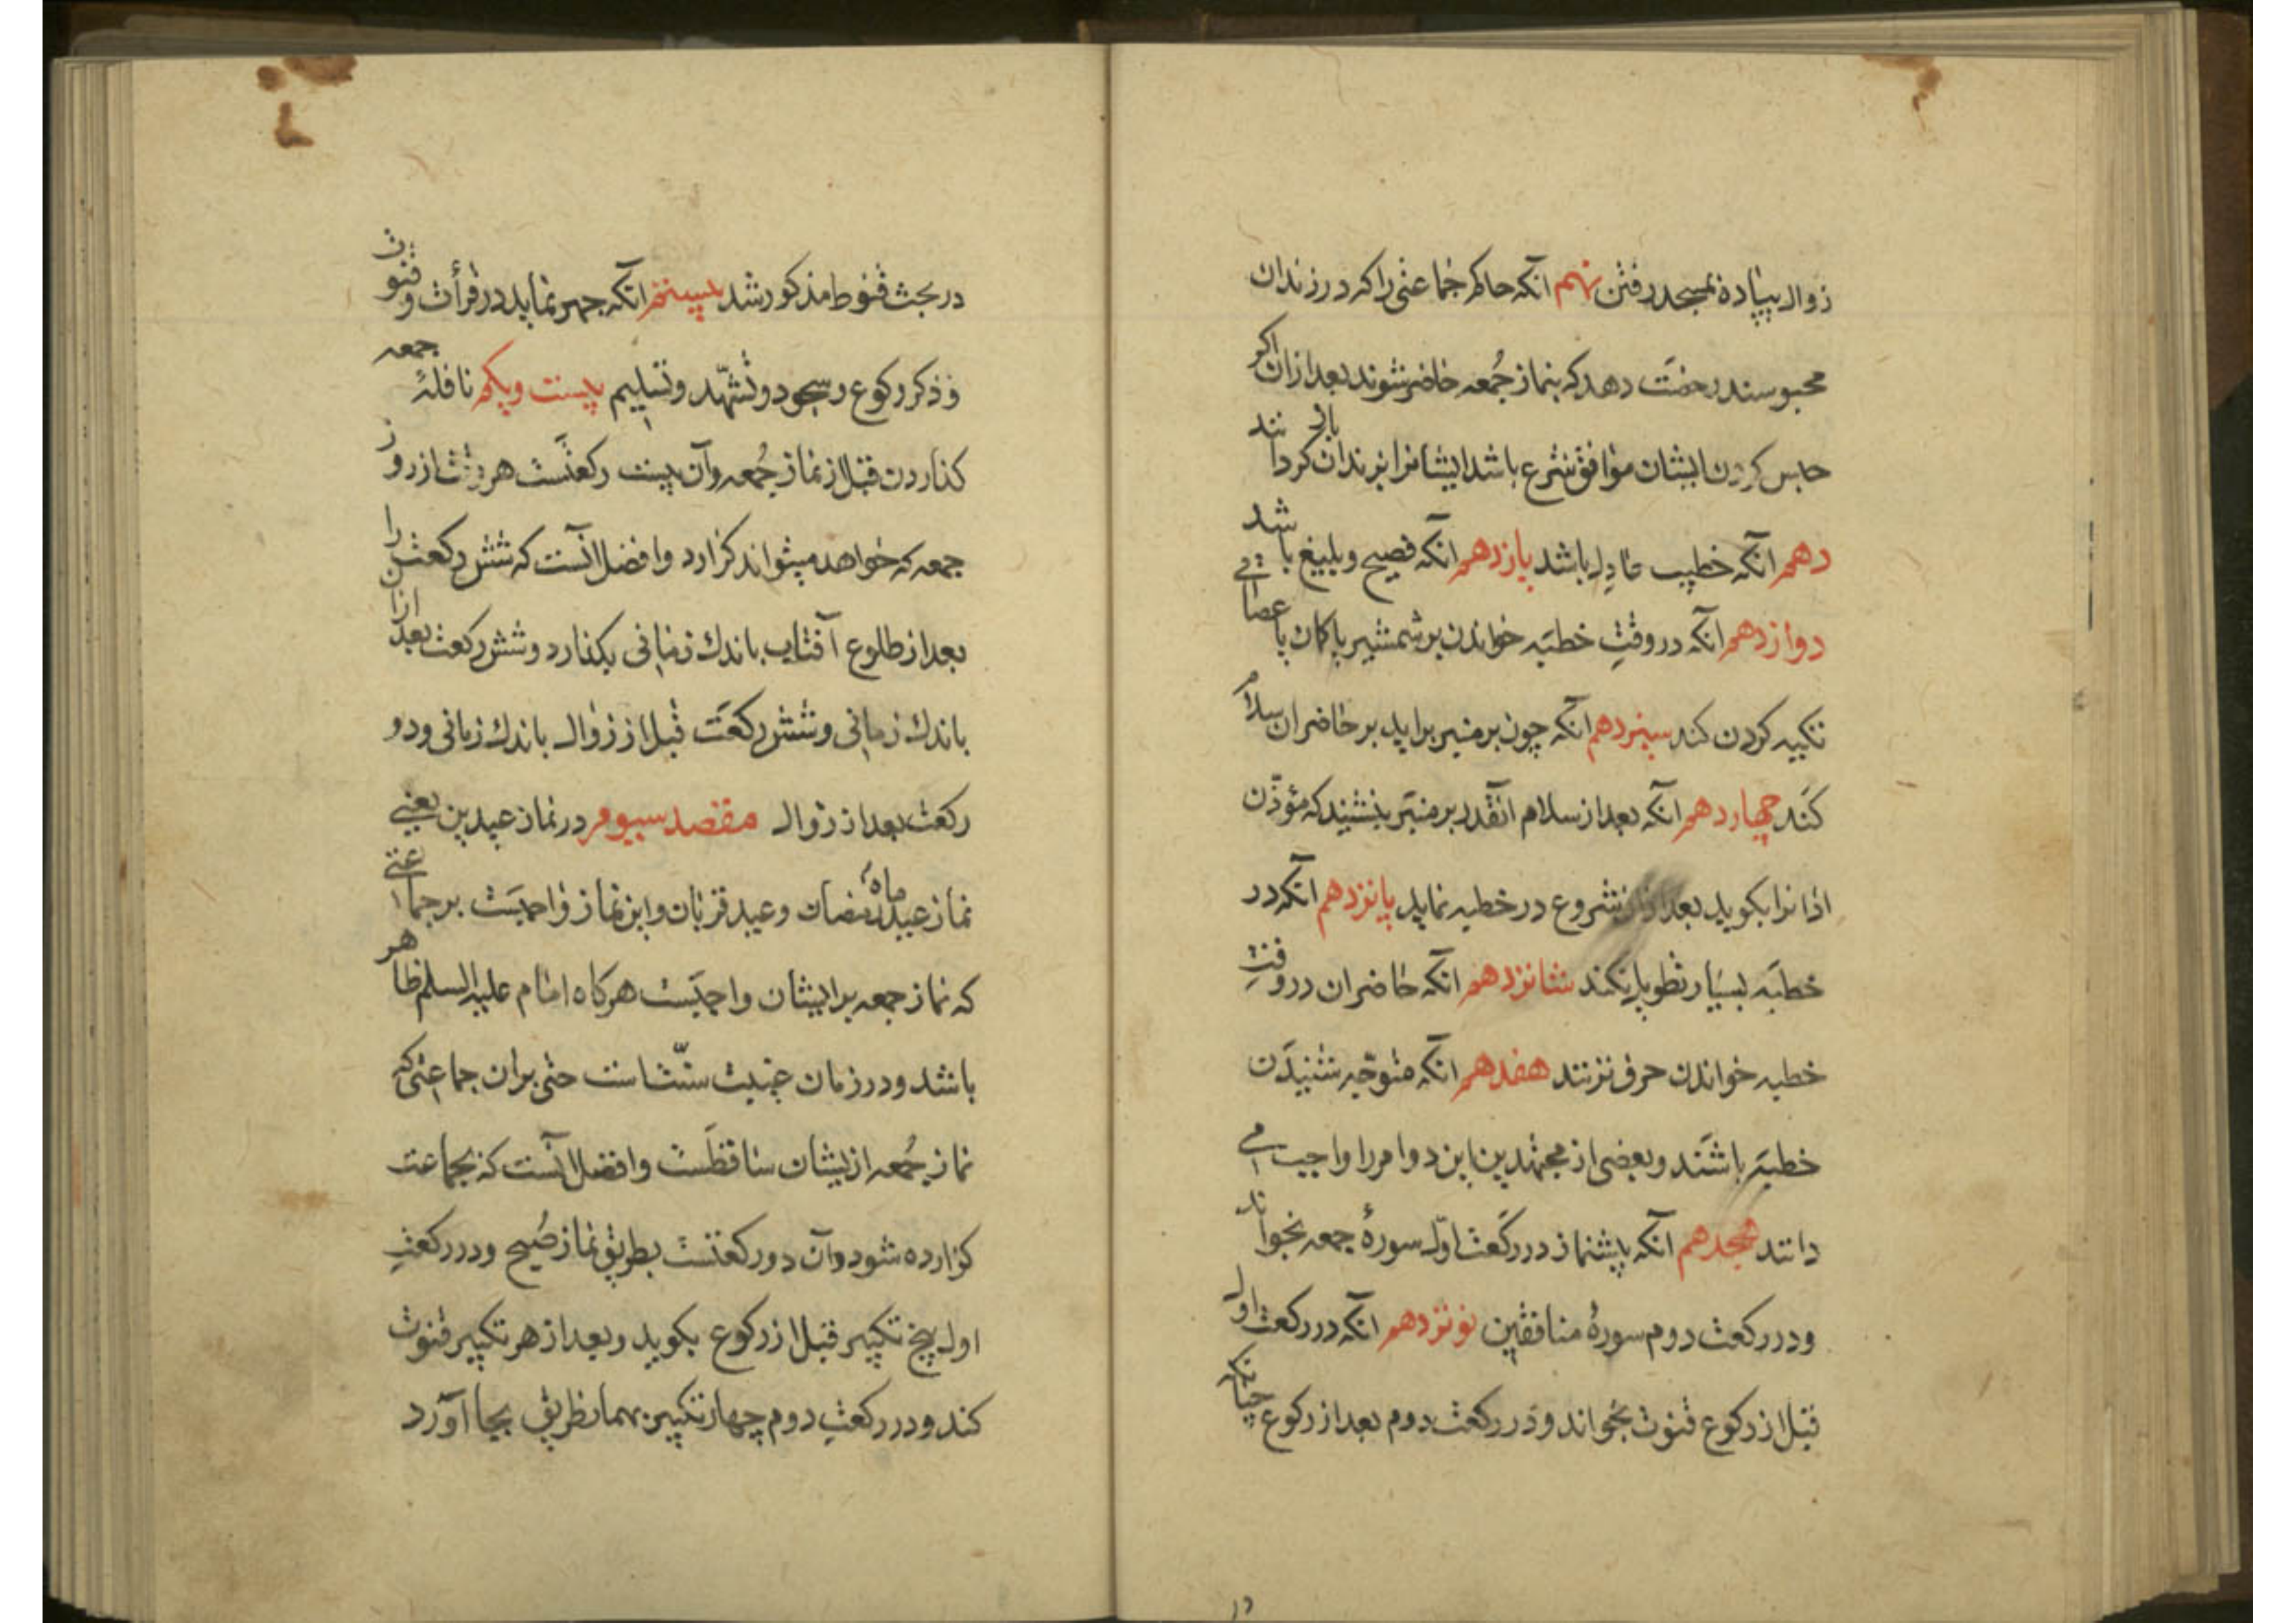 زوال پیاده بمسجد رفتن نهم آنکه حاکم جماعتی را که در زندان
محبوسند رخصت دهد که بنماز جُمعه حاضر شوند بعد ازان اکر
حبس کردن ایشان موافق شرع باشد ایشانرا بزندان باز کردانند
دهم آنکه خطیب عادل باشد یازدهم انکه فصیح و بلیغ باشد
دوازدهم آنکه در وقتِ خطبَه خواندن بر شمشیر یا کمان یا عصائی
تکیه کردن کند سیزدهم آنکه چون بر منبر براید بر حاضران سلام
کنَد چهاردهم آنکه بعد از سلام انقدر بر منبَر بنشیند که مؤذّن
اذانرا بکوید بعد ازان شروع در خطبه نماید پانزدهم انکه در
خطبَه بسیَار تطویل نکند شانزدهم انکه حاضران در وقتِ
خطبه خواندن حرف نزنند هفدهم انکه متوجّه شنیدَن
خطبَه باشَند و بعضی از مجتهدین این دو امر را واجب می
دانند هجدهم آنکه پیشنماز در رکعَت اوّل سورهٔ جمعه بخواند
و در رکعت دوم سورهٔ منافقین نوزدهم انکه در رکعت اول
قبل از رکوع قنوت بخواند و در رکعت دوم بعد از رکوع چنانکه
در
در بحث قنوط مذکور شد بیستم انکه جهر نماید در قرأت و قنوت
و ذکر رکوع و سجود و تشهّد و تسلیم بیست و یکم نافلهٔ جمعه
کذاردن قبل از نماز جُمعه و آن بیست رکعتَست هر وقت از روز
جمعه که خواهد میتواند کزارد و افضل انست که شش رکعت را
بعد از طلوع آفتاب باندك زمانی بکذارد و شش رکعت بعد ازان
باندك زمانی و شش رکعَت قبل از زوال باندك زمانی و دو
رکعت بعد از زوال مقصد سیوم در نماز عیدین یعنی
نماز عید ماه رمضان و عید قربان و این نماز واجبَست بر جماعتی
که نماز جمعه بر ایشان واجبَست هرکاه امام علیه السلم ظاهر
باشد و در زمان غیبت سنّت است حتی بران جماعتی که
نماز جُمعه از یشان ساقطَست و افضل انست که بجماعت
کزارده شود و آن دو رکعتست بطریق نماز صُبح و در رکعتِ
اول پنج تکبیر قبل از رکوع بکوید و بعد از هر تکبیر قنوت
کند و در رکعتِ دوم چهار تکبیر بهمان طریق بجا آورد